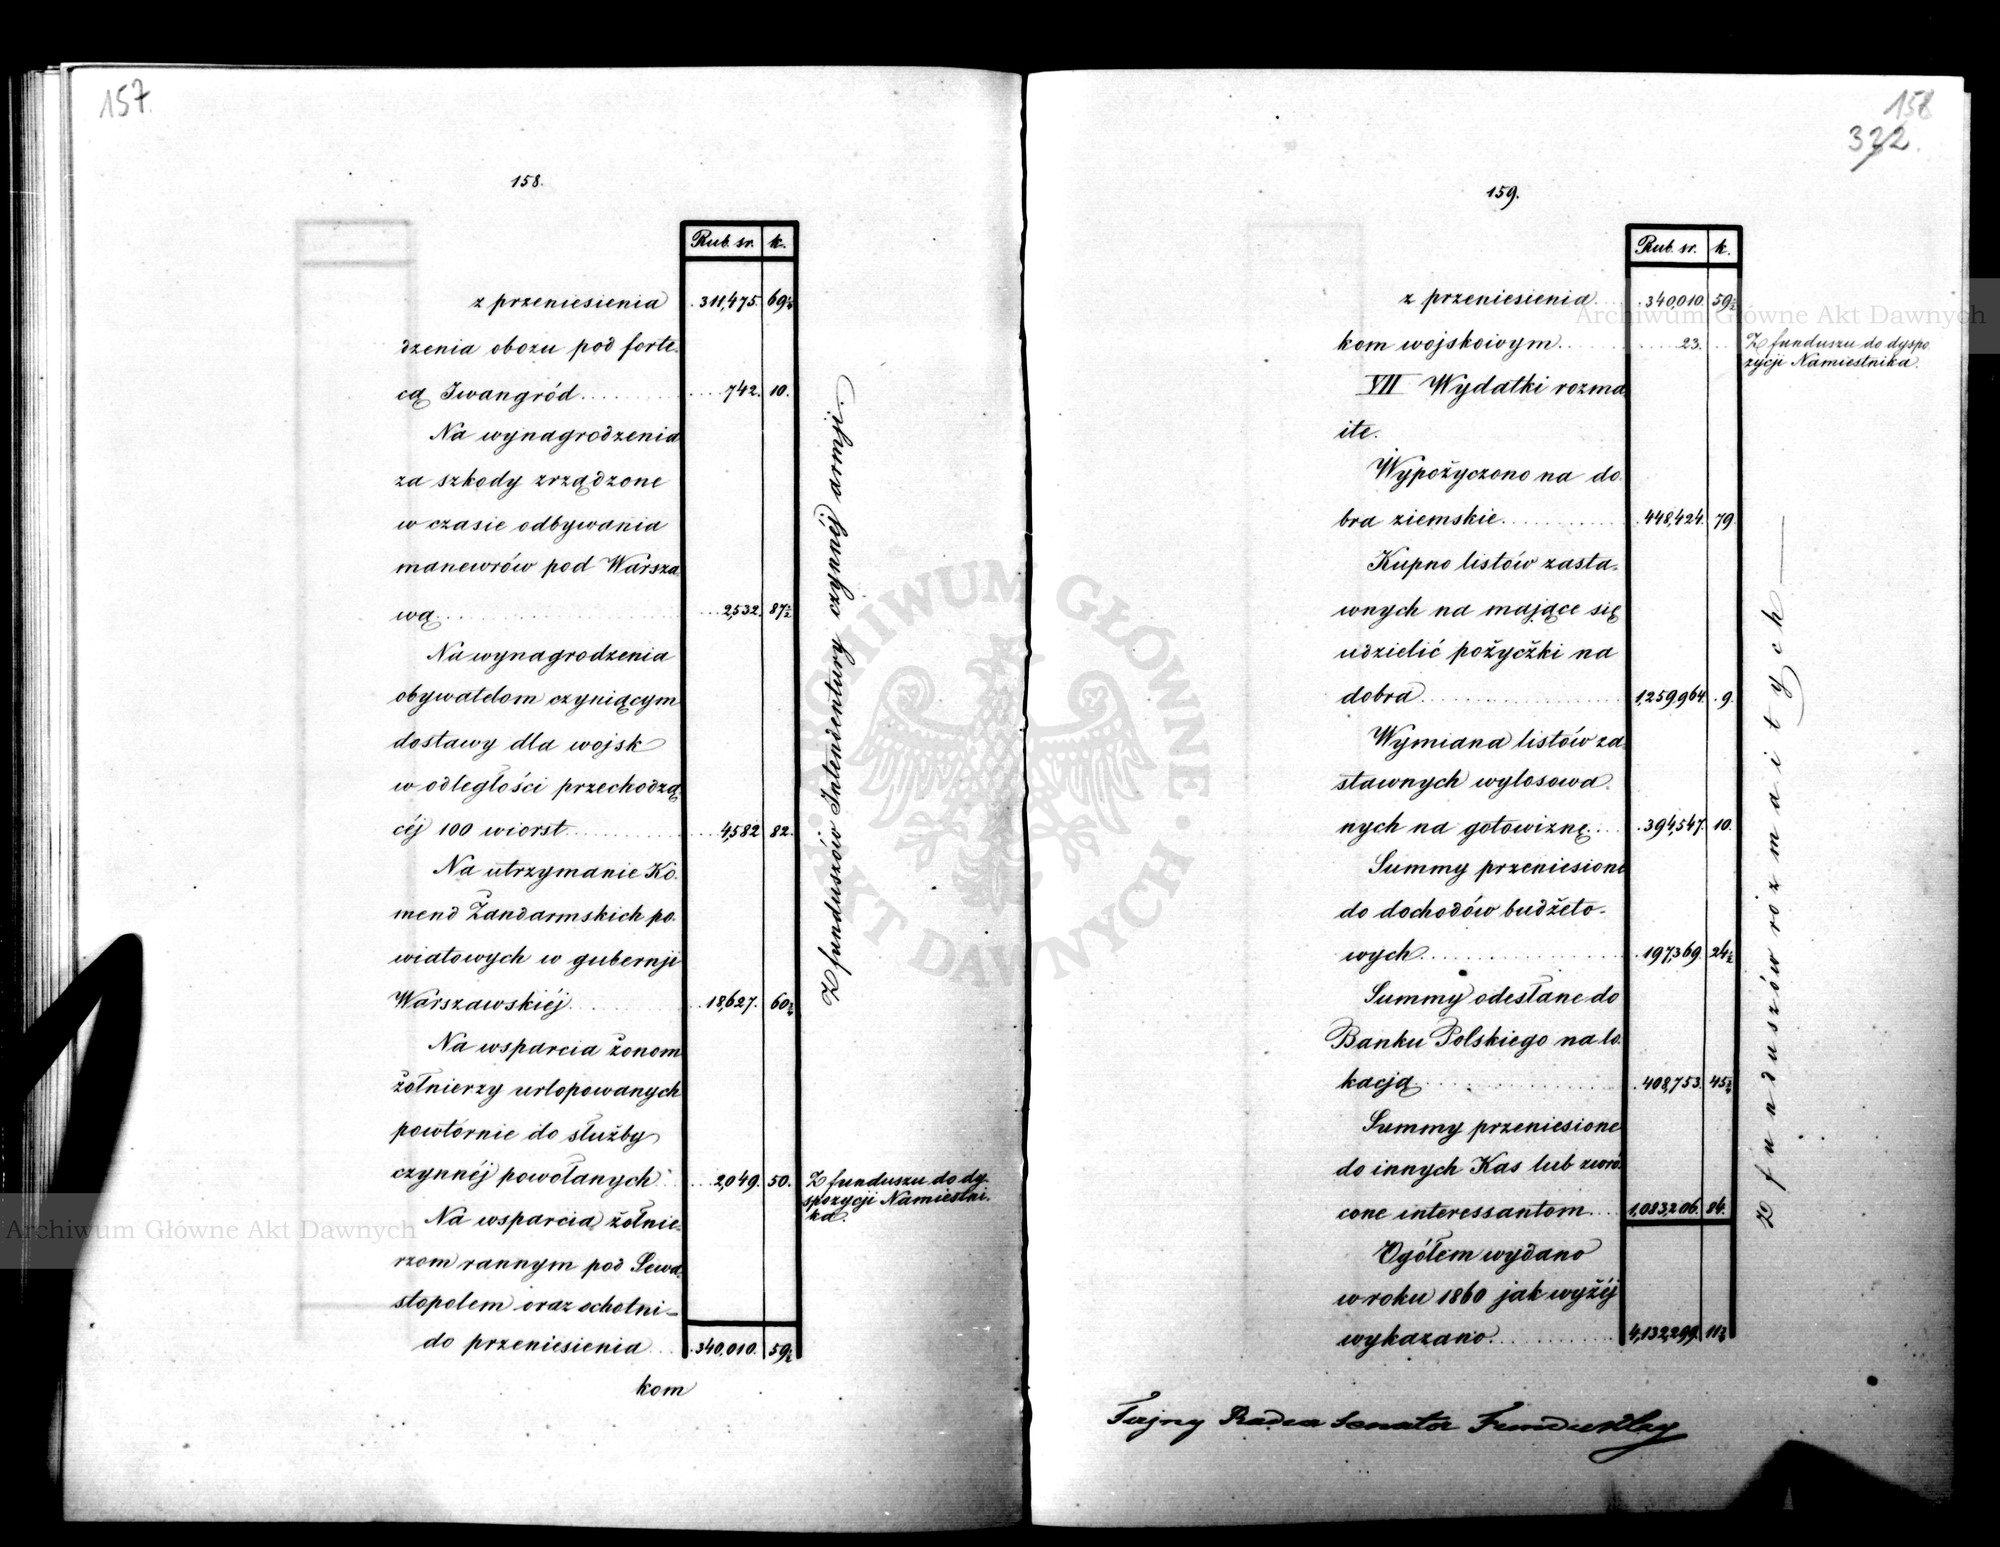 157.
158.
Rub. sr. k.
z przeniesienia 311,475. 69½
dzenia obozu pod forte-
cą Iwangród 742. 10.
Na wynagrodzenia
za szkody zrządzone
w czasie odbywania
manewrów pod Warsza-
wą 2,532. 87½
Na wynagrodzenia
obywatelom czyniącym
dostawy dla wojsk
w odległości przechodzą-
céj 100 wiorst 4,582 82.
Na utrzymanie Ko-
mend Żandarmskich po-
wiatowych w gubernji
Warszawskiéj 18,627. 60½
Na wsparcia żonom
żołnierzy urlopowanych
powtórnie do służby
czynnéj powołanych 2,049. 50.
Na wsparcia żołnie-
rzom rannym pod Sewa-
stopolem oraz ochotni-
do przeniesienia 340,010. 59½
kom
Z funduszów Intendentury czynnéj armji.
Z funduszu do dy-
spozycji Namiestni-
ka.
158
322.
159.
Rub. sr. k.
z przeniesienia 340,010. 59½
kom wojskowym 23.
Z funduszu do dyspo
zycji Namiestnika.
VII Wydatki rozma
ite.
Wypożyczono na do-
bra ziemskie 448,424. 79.
Kupno listów zasta-
wnych na mające się
udzielić pożyczki na
dobra 1,259,964. 9.
Wymiana listów za-
stawnych wylosowa-
nych na gotowiznę 394,547. 10.
Summy przeniesione
do dochodów budżeto-
wych 197,369. 24½
Summy odesłane do
Banku Polskiego na lo-
kacją 408,753. 45½
Summy przeniesione
do innych Kas lub zwró-
cone interessantom 1,083,206. 84.
Ogółem wydano
w roku 1860 jak wyżéj
wykazano 4,132,299. 11½
Z funduszów rozmaitych
Tajny Radca Senator Funduklej
Archiwum Główne Akt Dawnych
Archiwum Główne Akt Dawnych
ARCHIWUM GŁÓWNE AKT DAWNYCH